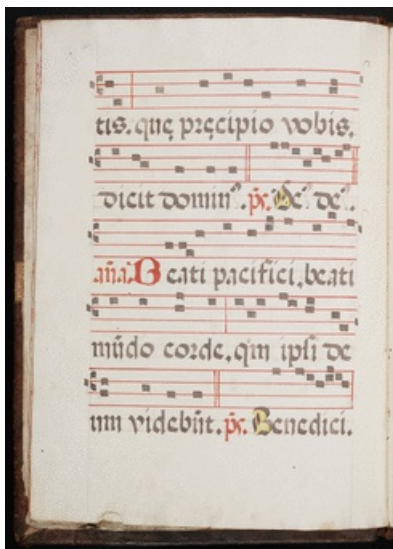 tis. quę pręcipio vobis.
dicit domin⁹. p̄s. De⁹ de⁹.
añа. Beati pacifici, beati
mūdo corde, qm ipsi de
um videbūt. p̄s. Benedici.